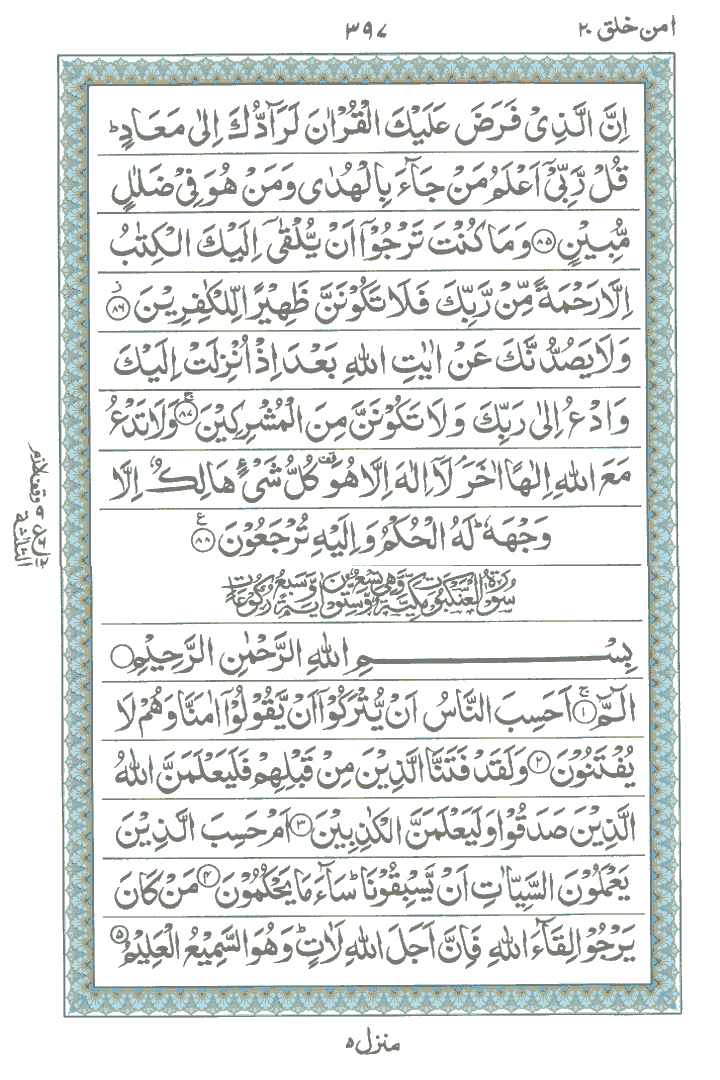 امن خلق ٢٠
٣٩٧
اِنَّ الَّذِىْ فَرَضَ عَلَيْكَ الْقُرْاٰنَ لَرَآدُّكَ اِلٰى مَعَادٍ ؕ
قُلْ رَّبِّىْۤ اَعْلَمُ مَنْ جَآءَ بِالْهُدٰى وَمَنْ هُوَ فِىْ ضَلٰلٍ
مُّبِيْنٍ ﴿٨٥﴾ وَمَا كُنْتَ تَرْجُوْۤا اَنْ يُّلْقٰٓى اِلَيْكَ الْكِتٰبُ
اِلَّا رَحْمَةً مِّنْ رَّبِّكَ فَلَا تَكُوْنَنَّ ظَهِيْرًا لِّلْكٰفِرِيْنَ ﴿٨٦﴾
وَلَا يَصُدُّنَّكَ عَنْ اٰيٰتِ اللّٰهِ بَعْدَ اِذْ اُنْزِلَتْ اِلَيْكَ
وَادْعُ اِلٰى رَبِّكَ وَلَا تَكُوْنَنَّ مِنَ الْمُشْرِكِيْنَ ﴿٨٧﴾ وَلَا تَدْعُ
مَعَ اللّٰهِ اِلٰهًا اٰخَرَ ۘ لَاۤ اِلٰهَ اِلَّا هُوَ ۫ كُلُّ شَىْءٍ هَالِكٌ اِلَّا
وَجْهَهٗ ؕ لَهُ الْحُكْمُ وَاِلَيْهِ تُرْجَعُوْنَ ﴿٨٨﴾
سُوْرَةُ الْعَنْكَبُوْتِ مَكِّيَّةٌ وَّهِىَ تِسْعٌ وَّسِتُّوْنَ اٰيَةً وَّسَبْعُ رُكُوْعَاتٍ
بِسْمِ اللّٰهِ الرَّحْمٰنِ الرَّحِيْمِ
الٓمّٓ ﴿١﴾ اَحَسِبَ النَّاسُ اَنْ يُّتْرَكُوْۤا اَنْ يَّقُوْلُوْۤا اٰمَنَّا وَهُمْ لَا
يُفْتَنُوْنَ ﴿٢﴾ وَلَقَدْ فَتَنَّا الَّذِيْنَ مِنْ قَبْلِهِمْ فَلَيَعْلَمَنَّ اللّٰهُ
الَّذِيْنَ صَدَقُوْا وَلَيَعْلَمَنَّ الْكٰذِبِيْنَ ﴿٣﴾ اَمْ حَسِبَ الَّذِيْنَ
يَعْمَلُوْنَ السَّيِّاٰتِ اَنْ يَّسْبِقُوْنَا ؕ سَآءَ مَا يَحْكُمُوْنَ ﴿٤﴾ مَنْ كَانَ
يَرْجُوْا لِقَآءَ اللّٰهِ فَاِنَّ اَجَلَ اللّٰهِ لَاٰتٍ ؕ وَهُوَ السَّمِيْعُ الْعَلِيْمُ ﴿٥﴾
منزل ٥